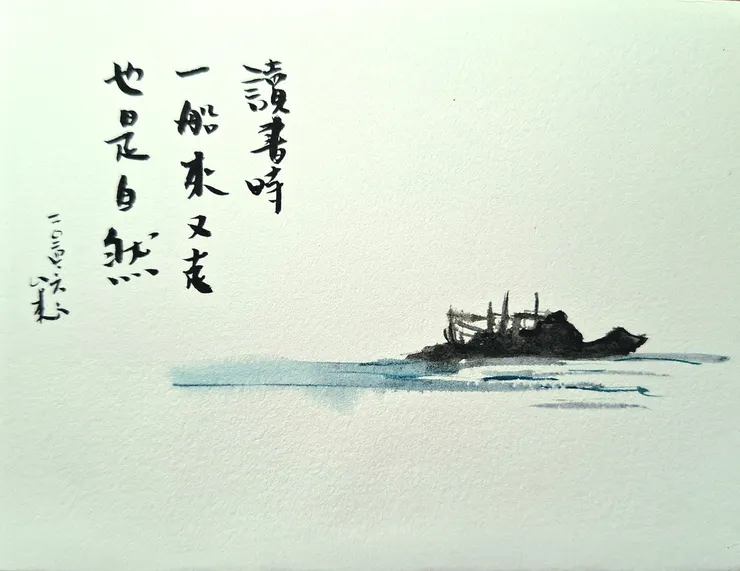 讀書時
一船來又走
也是自然
二〇二四、六、